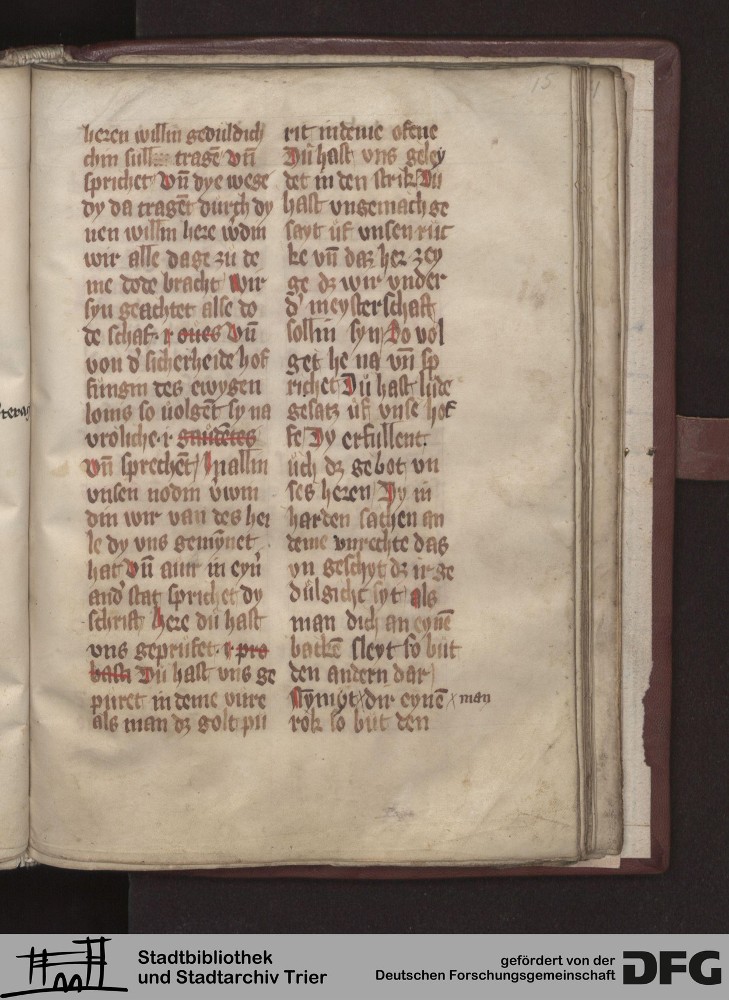 heren willin geduldich
chin sull tragē vn̄
sprichet vn̄ dye wege
dy da tragēt durch dy
nen willin here wdin
wir alle dage zu de
me dode bracht wir
syn geachtet alse do
de schaf· r oues vn̄
von d' sicherheide hof
fungin des ewygen
loins so uolgēt sy na
vroliche· r gaudētes
vn̄ sprechēt / In allin
vnsen nodin vwin
din wir van des hei
le dy vns gemȳnet
hat vn̄ aur in eyn̄
and' stat sprichet dy
schrift here du hast
vns geprufet· r pro
basti Du hast vns ge
puret in deme vure
als man dz golt pu
15
rit in deme ofene
Du hast vns geley
det in den strik Du
hast vngemach ge
sayt uf vnsen ruc
ke vn̄ daz her zey
ge dz wir vnder
d' meysterschaft
sollin syn So vol
get he na vn̄ sp
richet Du hast lude
gesatz uf vnse hof
fe Dy erfullent.
uch dz gebot vn
ses heren / Dy in
harden sachen an
deme vnrechte das
vn geschyt dz ir ge
dulgicht syt als
man dich an eynē
backē sleyt so but
den andern dar /
Nȳmyt × dir eynē × man
rok so but den
Stadtbibliothek
und Stadtarchiv Trier
gefördert von der
Deutschen Forschungsgemeinschaft
DFG